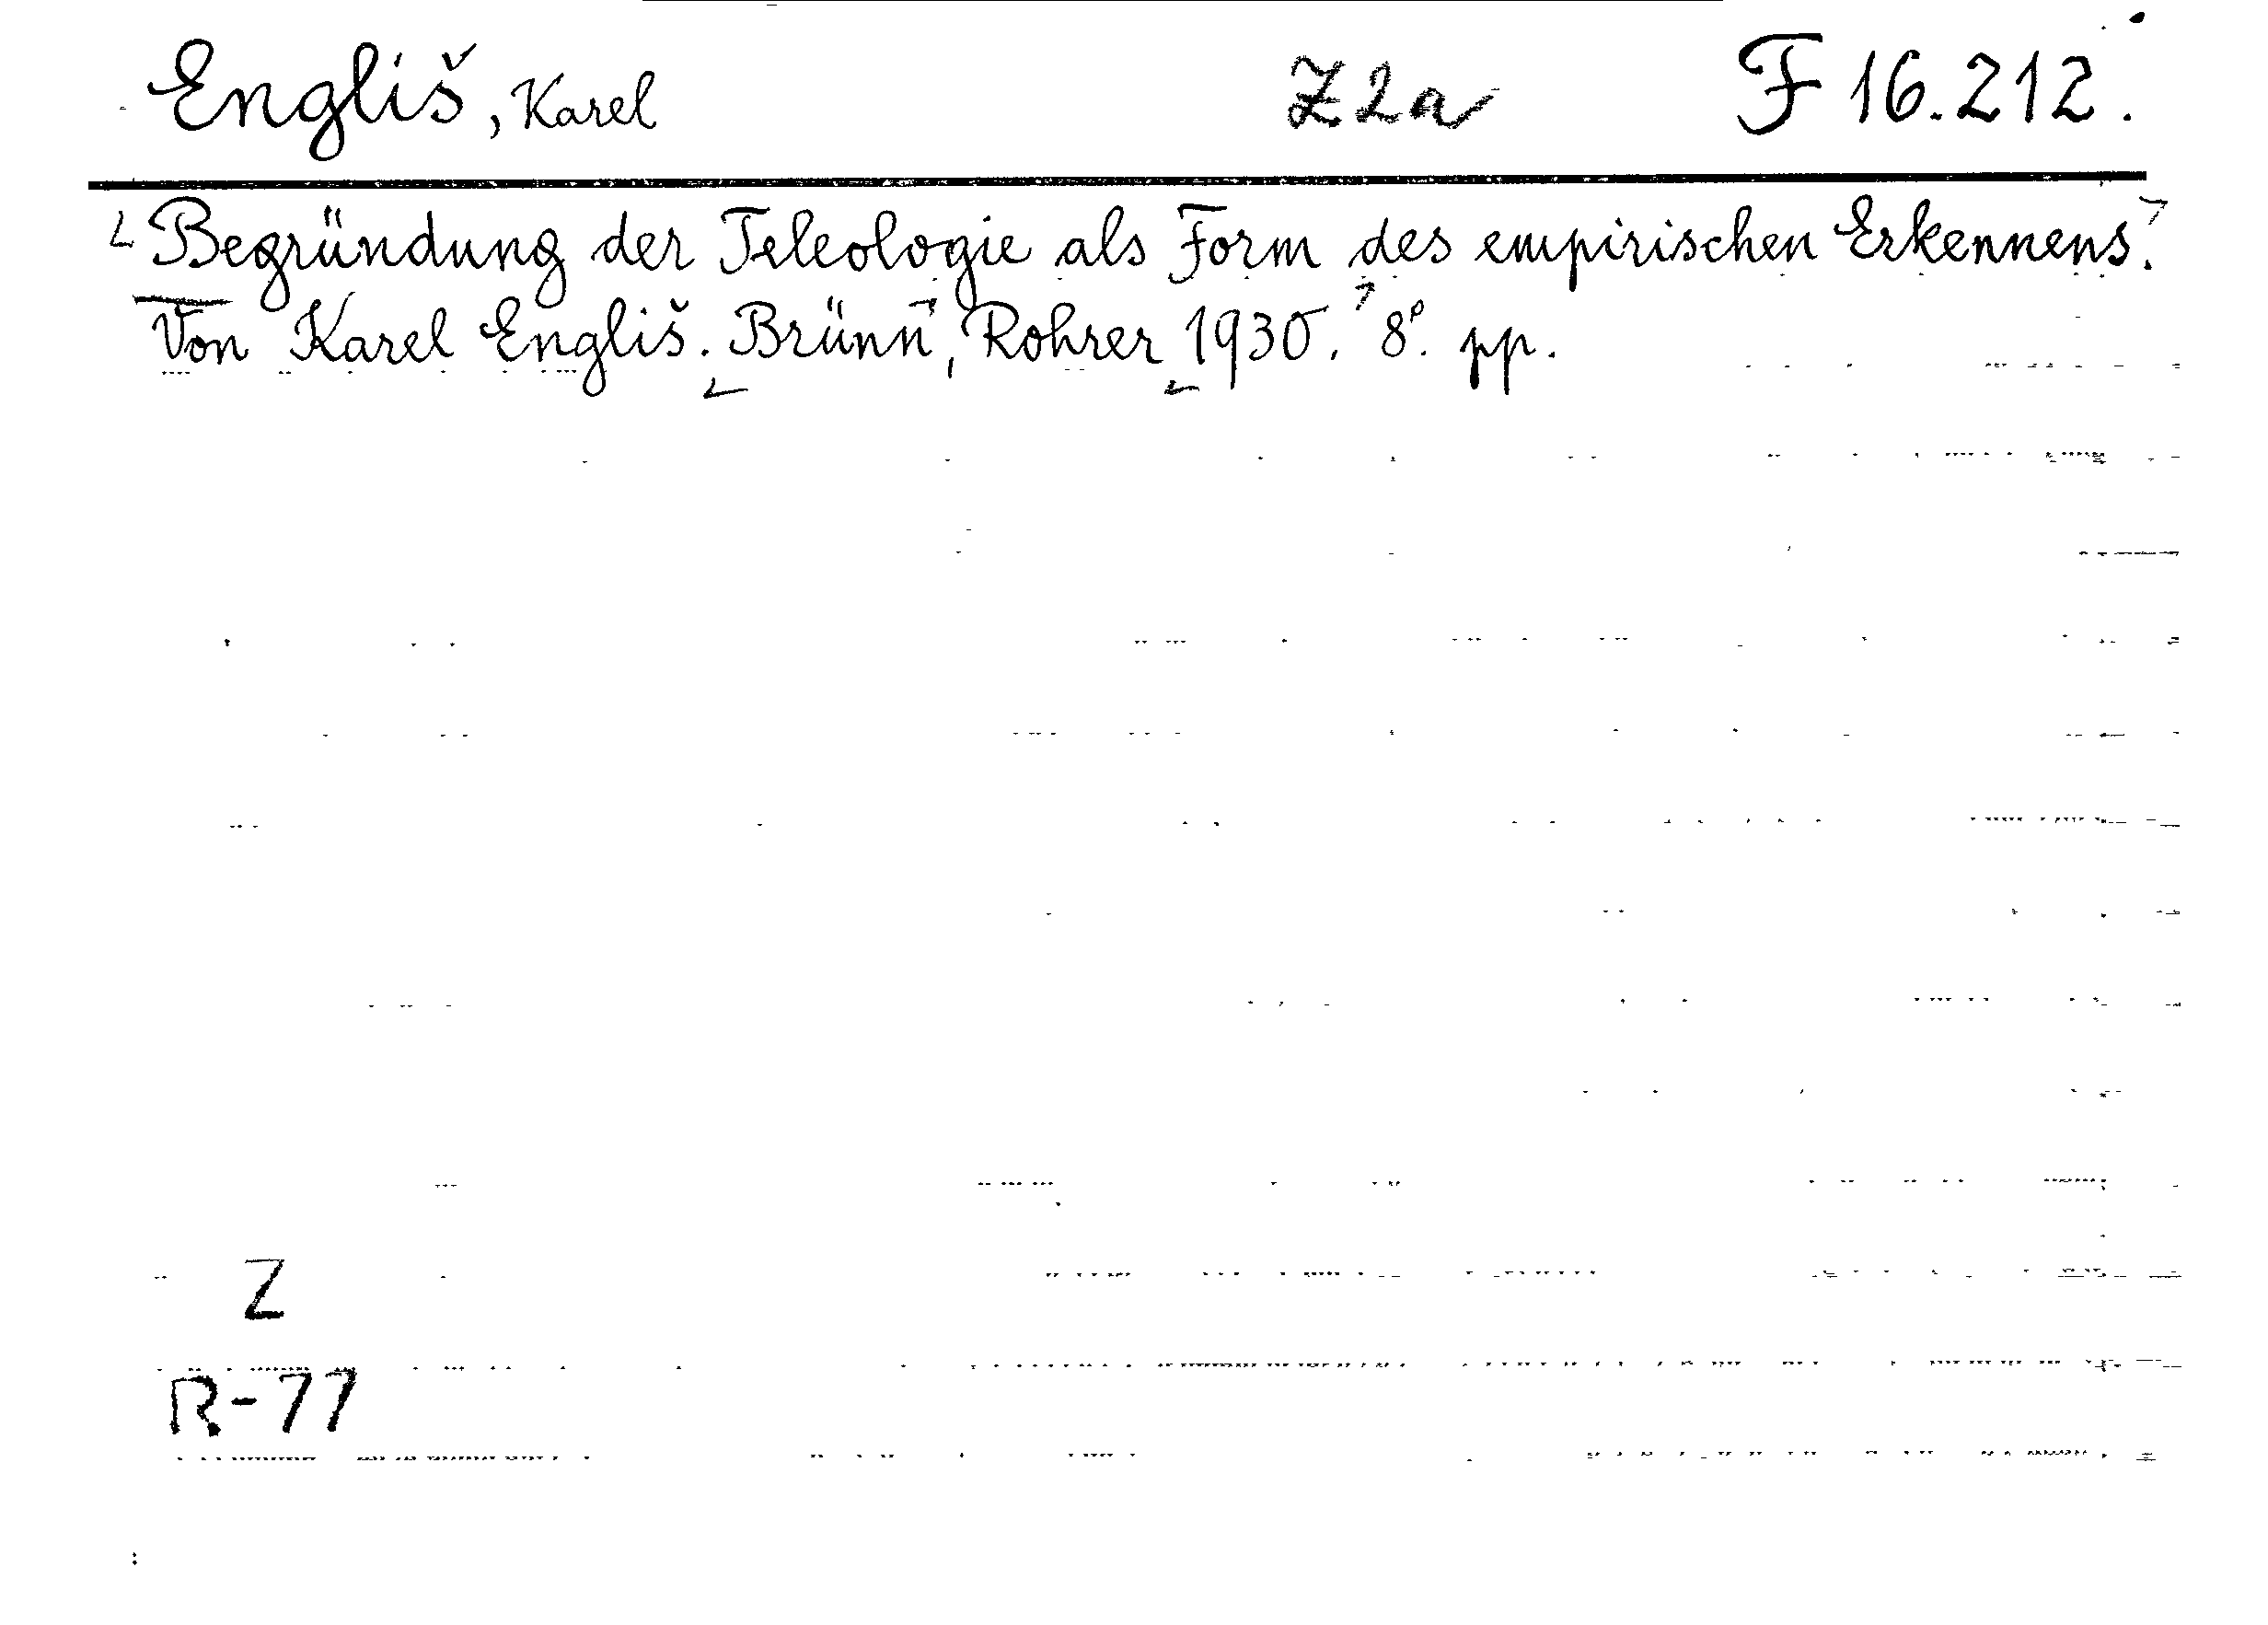 Engliš, Karel Z2a F 16.212.
Begründung der Teleologie als Form des empirischen Erkennens.
Von Karel Engliš. Brünn, Rohrer 1930. 8°. pp.
Z
R-77